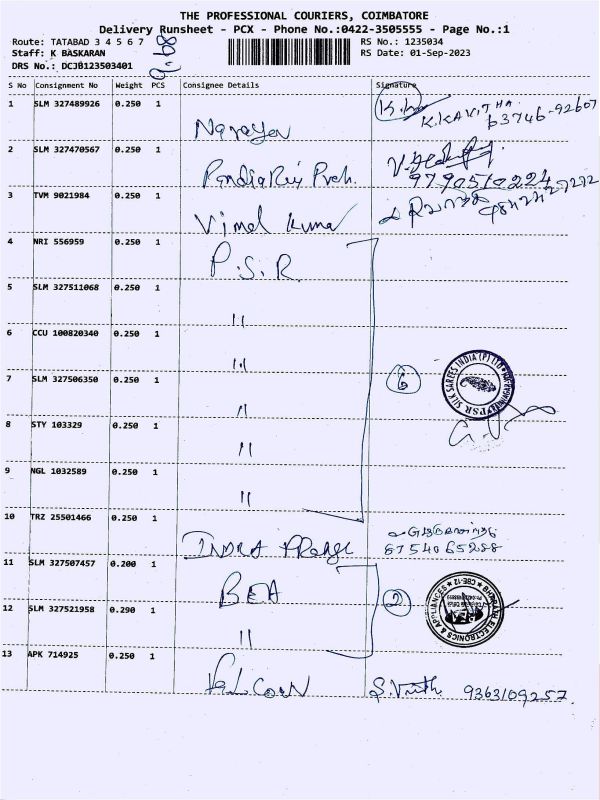 THE PROFESSIONAL COURIERS, COIMBATORE
Delivery Runsheet - PCX - Phone No.:0422-3505555 - Page No.:1
Route: TATABAD 3 4 5 6 7
RS No.: 1235034
Staff: K BASKARAN
RS Date: 01-Sep-2023
DRS No.: DCJB123503401
S No Consignment No Weight PCS Consignee Details Signature
1 SLM 327489926 0.250 1 Narayan K.K K.KAVITHA 63746-92607
2 SLM 327470567 0.250 1 9790510224
3 TVM 9021984 0.250 1 Vimal Kumar
4 NRI 556959 0.250 1 P.S.R.
5 SLM 327511068 0.250 1 "
6 CCU 100820340 0.250 1 "
7 SLM 327506350 0.250 1 " 6 PSR SILK SAREES INDIA (P) LTD
8 STY 103329 0.250 1 "
9 NGL 1032589 0.250 1 "
10 TRZ 25501466 0.250 1 INDRA 8754065288
11 SLM 327507457 0.200 1 BEA
12 SLM 327521958 0.290 1 " 2 BHARATH ELECTRONICS & APPLIANCES CBE-12
13 APK 714925 0.250 1 9363109257